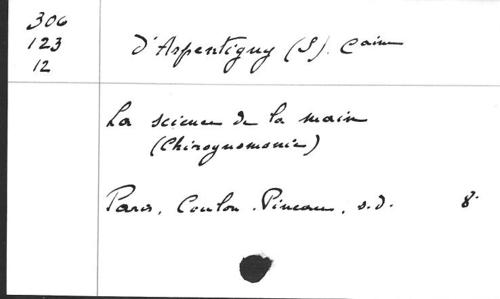 306
123
12
d'Arpentigny (S). Caim
La science de la main
(Chirognomonie)
Paris, Coulon-Pineau, s.d. 8°